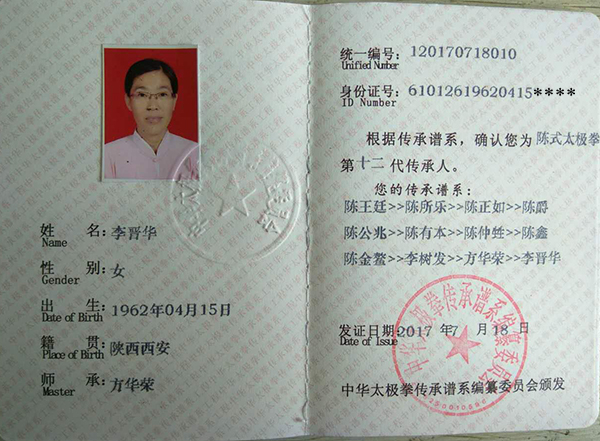 姓 名：李晋华
Name
性 别：女
Gender
出 生：1962年04月15日
Date of Birth
籍 贯：陕西西安
Place of Birth
师 承：方华荣
Master
统一编号：120170718010
Unified Number
身份证号：61012619620415****
ID Number
根据传承谱系，确认您为陈式太极拳
第十二代传承人。
您的传承谱系：
陈王廷>>陈所乐>>陈正如>>陈爵
陈公兆>>陈有本>>陈仲甡>>陈鑫
陈金鳌>>李树发>>方华荣>>李晋华
发证日期：2017 年7 月 18 日
Date of Issue
中华太极拳传承谱系编纂委员会
中华太极拳传承谱系编纂委员会颁发